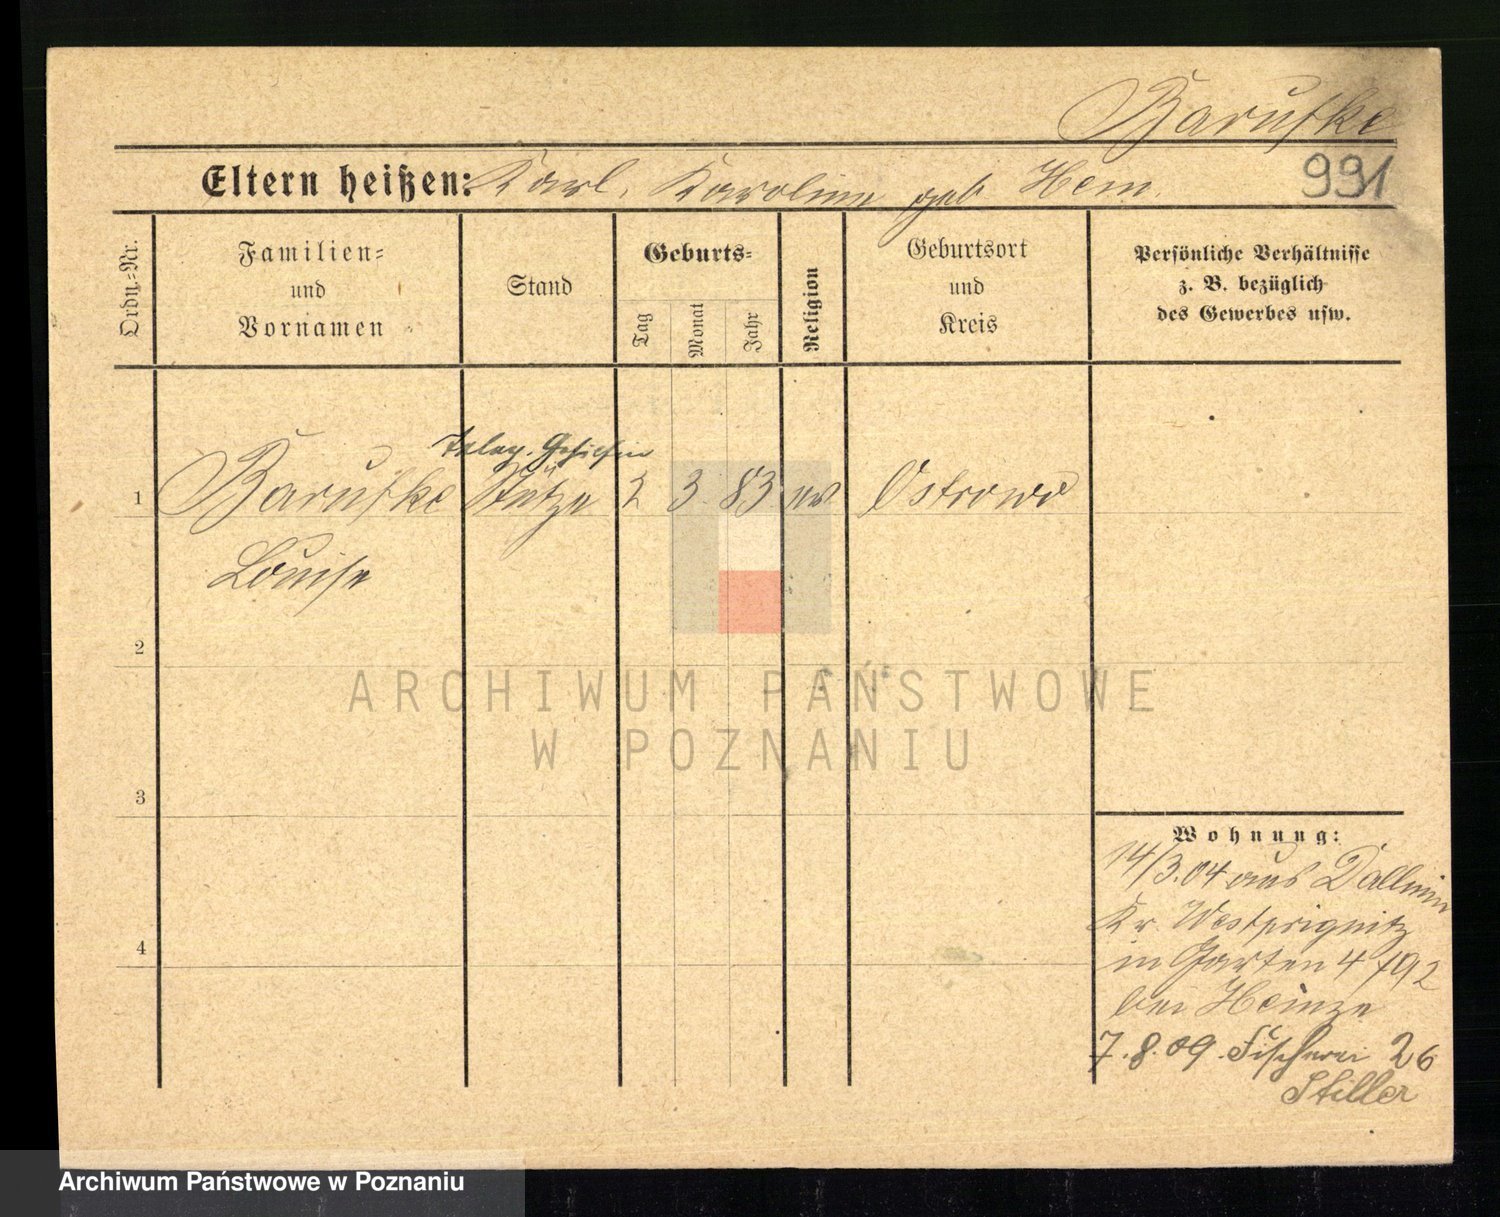 Barufke
991
Eltern heißen: Karl, Karoline geb Hein.
Ordn.-Nr.
Familien-
und
Vornamen
Stand
Geburts-
Tag
Monat
Jahr
Religion
Geburtsort
und
Kreis
Persönliche Verhältnisse
z. B. bezüglich
des Gewerbes usw.
Teleg. Gehilfin
1 Barufke Stütze 2 3. 83 ev Ostrowo
Louise
2
3
4
Wohnung:
14/3.04 aus Dallmin
Kr. Westprignitz
in Garten 4
bei Heinze
7.8.09. Fischerei 26
Stiller
ARCHIWUM PAŃSTWOWE
W POZNANIU
Archiwum Państwowe w Poznaniu